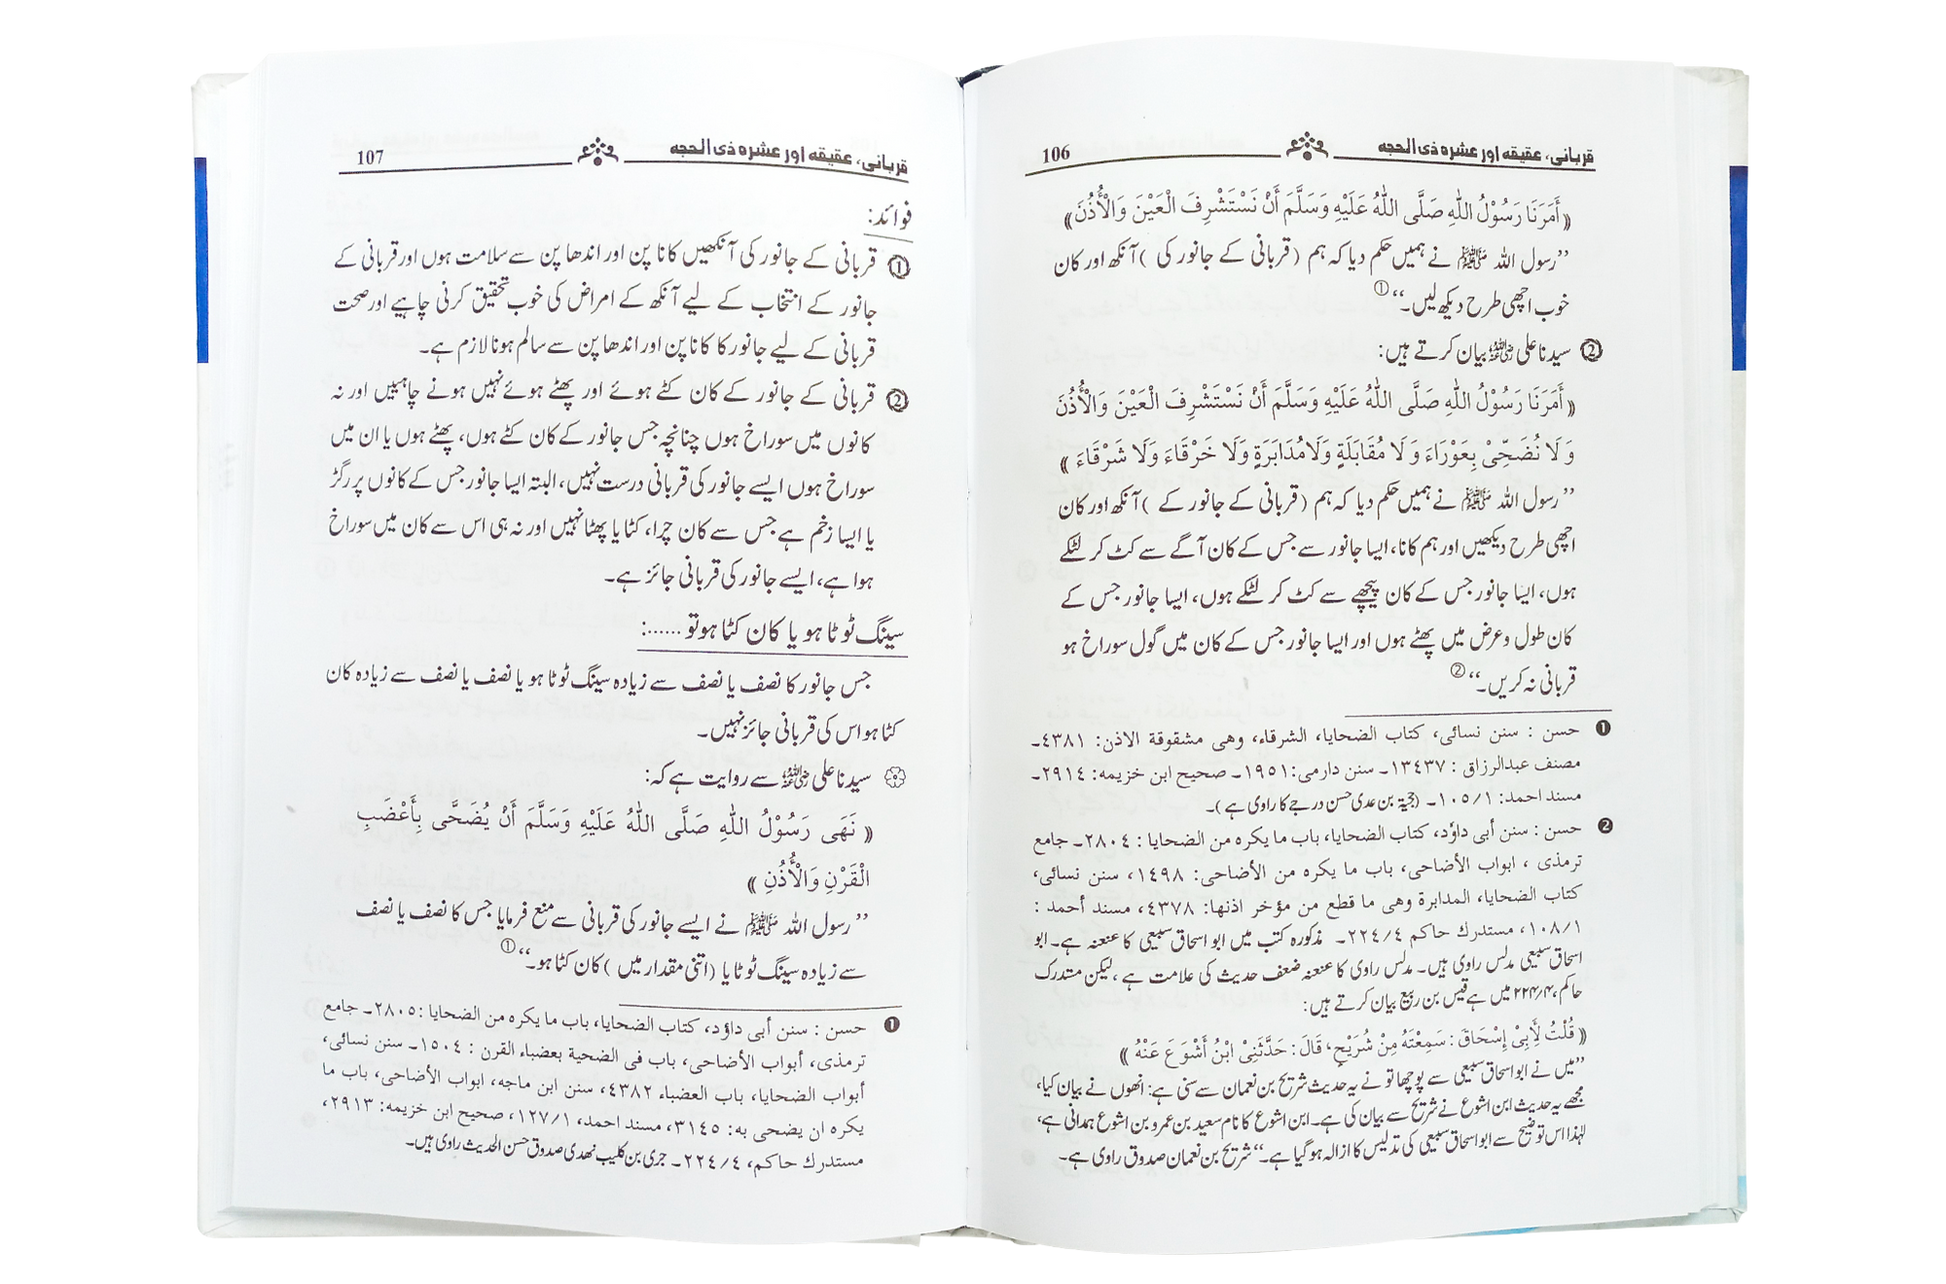 قربانی، عقیقہ اور عشرہ ذی الحجہ 106
﴿ أَمَرَنَا رَسُوْلُ اللّٰهِ صَلَّى اللّٰهُ عَلَيْهِ وَسَلَّمَ أَنْ نَسْتَشْرِفَ الْعَيْنَ وَالْأُذُنَ ﴾
’’رسول اللہ ﷺ نے ہمیں حکم دیا کہ ہم (قربانی کے جانور کی) آنکھ اور کان
خوب اچھی طرح دیکھ لیں۔‘‘ ①
② سیدنا علی رضی اللہ عنہ بیان کرتے ہیں:
﴿ أَمَرَنَا رَسُوْلُ اللّٰهِ صَلَّى اللّٰهُ عَلَيْهِ وَسَلَّمَ أَنْ نَسْتَشْرِفَ الْعَيْنَ وَالْأُذُنَ
وَلَا نُضَحِّيْ بِعَوْرَاءَ وَلَا مُقَابَلَةٍ وَلَا مُدَابَرَةٍ وَلَا خَرْقَاءَ وَلَا شَرْقَاءَ ﴾
’’رسول اللہ ﷺ نے ہمیں حکم دیا کہ ہم (قربانی کے جانور کے) آنکھ اور کان
اچھی طرح دیکھیں اور ہم کانا، ایسا جانور سے جس کے کان آگے سے کٹ کر لٹکے
ہوں، ایسا جانور جس کے کان پیچھے سے کٹ کر لٹکے ہوں، ایسا جانور جس کے
کان طول وعرض میں پھٹے ہوں اور ایسا جانور جس کے کان میں گول سوراخ ہو
قربانی نہ کریں۔‘‘ ②
❶ حسن : سنن نسائی، کتاب الضحایا، الشرقاء، وھی مشقوقة الاذن: ٤٣٨١۔
مصنف عبدالرزاق : ١٣٤٣٧۔ سنن دارمی: ١٩٥١۔ صحیح ابن خزیمه: ٢٩١٤۔
مسند احمد: ١/١٠٥۔ (حجیۃ بن عدی حسن درجے کا راوی ہے)۔
❷ حسن : سنن أبی داوٗد، کتاب الضحایا، باب ما یکره من الضحایا : ٢٨٠٤۔ جامع
ترمذی ، ابواب الأضاحی، باب ما یکره من الأضاحی: ١٤٩٨، سنن نسائی،
کتاب الضحایا، المدابرة وھی ما قطع من مؤخر اذنھا: ٤٣٧٨، مسند أحمد :
١/١٠٨، مستدرك حاکم ٤/٢٢٤۔ مذکورہ کتب میں ابو اسحاق سبیعی کا عنعنہ ہے۔ ابو
اسحاق سبیعی مدلس راوی ہیں۔ مدلس راوی کا عنعنہ ضعف حدیث کی علامت ہے، لیکن متدرک
حاکم، ۲۲۴/۴ میں ہے قیس بن ربیع بیان کرتے ہیں:
﴿ قُلْتُ لِأَبِيْ إِسْحَاقَ : سَمِعْتَهُ مِنْ شُرَيْحٍ، قَالَ : حَدَّثَنِيْ ابْنُ أَشْوَعَ عَنْهُ ﴾
’’میں نے ابو اسحاق سبیعی سے پوچھا تو نے یہ حدیث شریح بن نعمان سے سنی ہے: انھوں نے بیان کیا،
مجھے یہ حدیث ابن اشوع نے شریح سے بیان کی ہے۔ ابن اشوع کا نام سعید بن عمرو بن اشوع ہمدانی ہے،
لہٰذا اس توضیح سے ابو اسحاق سبیعی کی تدلیس کا ازالہ ہو گیا ہے۔‘‘ شریح بن نعمان صدوق راوی ہے۔
قربانی، عقیقہ اور عشرہ ذی الحجہ 107
فوائد:
① قربانی کے جانور کی آنکھیں کانا پن اور اندھا پن سے سلامت ہوں اور قربانی کے
جانور کے انتخاب کے لیے آنکھ کے امراض کی خوب تحقیق کرنی چاہیے اور صحت
قربانی کے لیے جانور کا کانا پن اور اندھا پن سے سالم ہونا لازم ہے۔
② قربانی کے جانور کے کان کٹے ہوئے اور پھٹے ہوئے نہیں ہونے چاہییں اور نہ
کانوں میں سوراخ ہوں چنانچہ جس جانور کے کان کٹے ہوں، پھٹے ہوں یا ان میں
سوراخ ہوں ایسے جانور کی قربانی درست نہیں، البتہ ایسا جانور جس کے کانوں پر رگڑ
یا ایسا زخم ہے جس سے کان چرا، کٹا یا پھٹا نہیں اور نہ ہی اس سے کان میں سوراخ
ہوا ہے، ایسے جانور کی قربانی جائز ہے۔
سینگ ٹوٹا ہو یا کان کٹا ہو تو ......:
جس جانور کا نصف یا نصف سے زیادہ سینگ ٹوٹا ہو یا نصف یا نصف سے زیادہ کان
کٹا ہو اس کی قربانی جائز نہیں۔
سیدنا علی رضی اللہ عنہ سے روایت ہے کہ:
﴿ نَهَى رَسُوْلُ اللّٰهِ صَلَّى اللّٰهُ عَلَيْهِ وَسَلَّمَ أَنْ يُضَحَّى بِأَعْضَبِ
الْقَرْنِ وَالْأُذُنِ ﴾
’’رسول اللہ ﷺ نے ایسے جانور کی قربانی سے منع فرمایا جس کا نصف یا نصف
سے زیادہ سینگ ٹوٹا یا (اتنی مقدار میں) کان کٹا ہو۔‘‘ ①
❶ حسن : سنن أبی داوٗد، کتاب الضحایا، باب ما یکره من الضحایا :٢٨٠٥۔ جامع
ترمذی، أبواب الأضاحی، باب فی الضحیة بعضباء القرن : ١٥٠٤۔ سنن نسائی،
أبواب الضحایا، باب العضباء ٤٣٨٢، سنن ابن ماجه، ابواب الأضاحی، باب ما
یکره ان یضحی به: ٣١٤٥، مسند احمد، ١/١٢٧، صحیح ابن خزیمه: ٢٩١٣،
مستدرك حاکم، ٤/٢٢٤۔ جری بن کلیب نھدی صدوق حسن الحدیث راوی ہیں۔